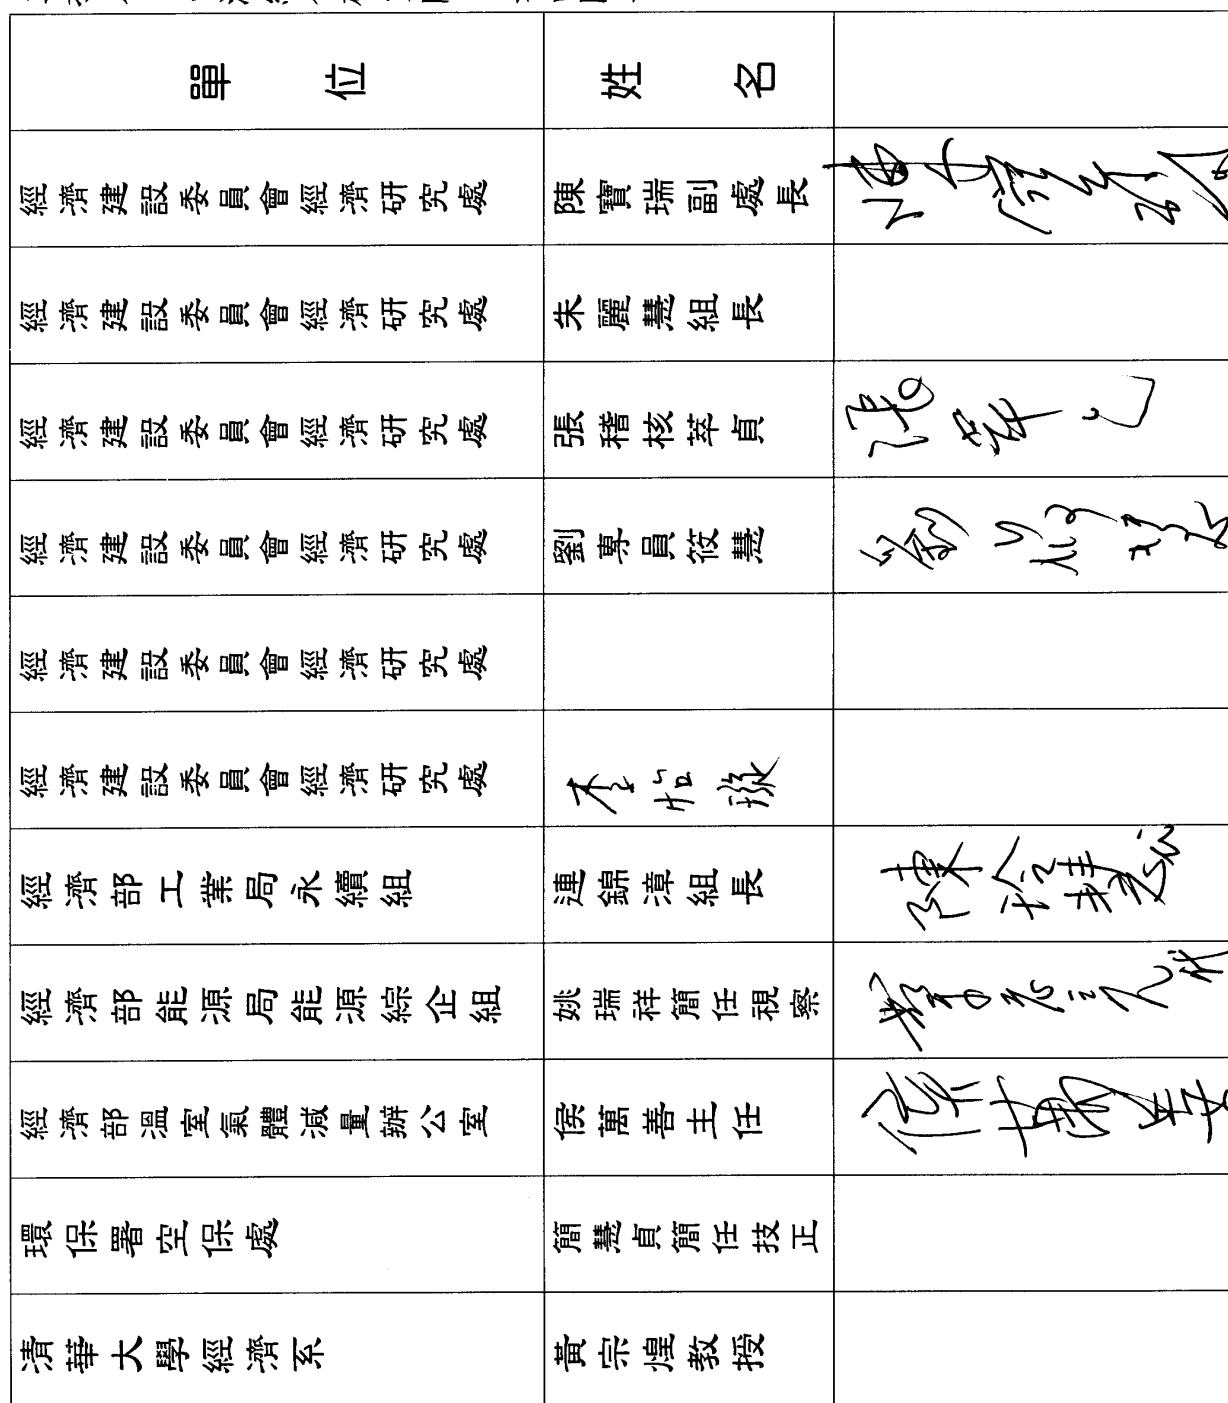 單位 姓名
經濟建設委員會經濟研究處 陳寶瑞副處長
經濟建設委員會經濟研究處 朱麗慧組長
經濟建設委員會經濟研究處 張稽核萃貞 張萃貞
經濟建設委員會經濟研究處 劉專員筱慧 劉筱慧
經濟建設委員會經濟研究處
經濟建設委員會經濟研究處 李怡璇
經濟部工業局永續組 連錦漳組長
經濟部能源局能源綜企組 姚瑞祥簡任視察
經濟部溫室氣體減量辦公室 侯萬善主任 侯萬善
環保署空保處 簡慧貞簡任技正
清華大學經濟系 黃宗煌教授